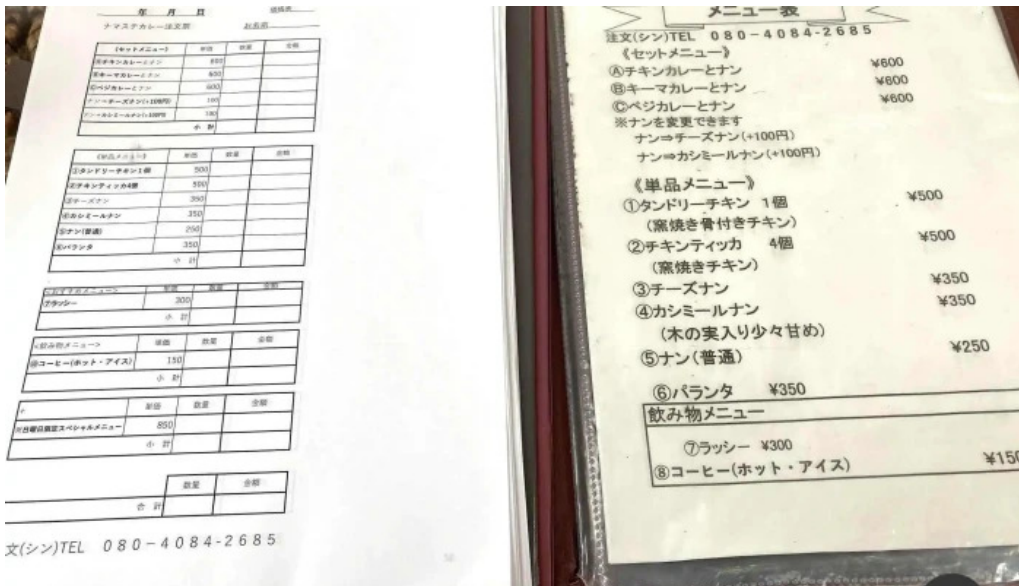 年 月 日
ナマステカレー注文票 お名前
《セットメニュー》 単価 数量 金額
Ⓐチキンカレーとナン 600
Ⓑキーマカレーとナン 600
Ⓒベジカレーとナン 600
ナン⇒チーズナン(+100円) 100
ナン⇒カシミールナン(+100円) 100
小 計
《単品メニュー》 単価 数量 金額
①タンドリーチキン1個 500
②チキンティッカ4個 500
③チーズナン 350
④カシミールナン 350
⑤ナン(普通) 250
⑥パランタ 350
小 計
<おすすめメニュー> 単価 数量 金額
⑦ラッシー 300
小 計
<飲み物メニュー> 単価 数量 金額
コーヒー(ホット・アイス) 150
小 計
単価 数量 金額
※日曜日限定スペシャルメニュー 850
小 計
数量 金額
合 計
文(シン)TEL 080-4084-2685
メニュー表
注文(シン)TEL 080-4084-2685
《セットメニュー》
Ⓐチキンカレーとナン ¥600
Ⓑキーマカレーとナン ¥600
Ⓒベジカレーとナン ¥600
※ナンを変更できます
ナン⇒チーズナン(+100円)
ナン⇒カシミールナン(+100円)
《単品メニュー》
①タンドリーチキン 1個 ¥500
(窯焼き骨付きチキン)
②チキンティッカ 4個 ¥500
(窯焼きチキン)
③チーズナン ¥350
④カシミールナン ¥350
(木の実入り少々甘め)
⑤ナン(普通) ¥250
⑥パランタ ¥350
飲み物メニュー
⑦ラッシー ¥300
⑧コーヒー(ホット・アイス) ¥150